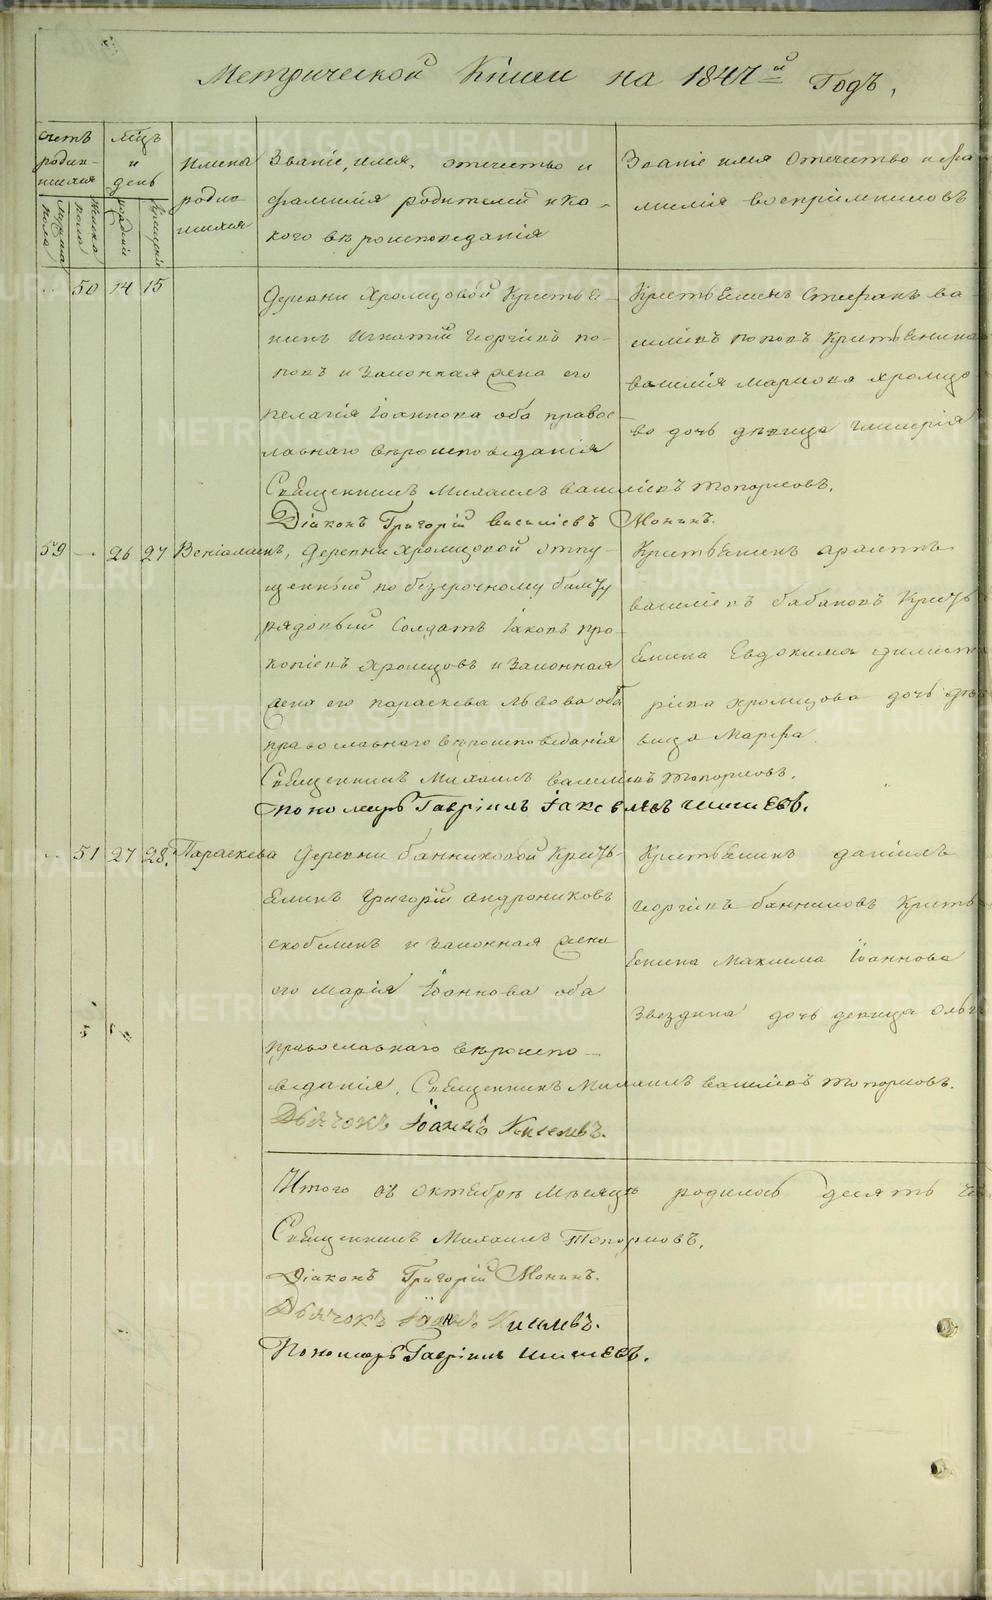 Метрической Книги на 1847й Годъ,
Счетъ родив-шихся
Мужска пола
Женска пола
Мцъ и день
рожденiй
крещенiй
Имена родив-шихся
Званiе, имя, отечество и фамилiя родителей и ка-кого вѣроисповѣданiя
Званiе имя Отечество и фа-милiя воспрiемниковъ
50 14 15
Деревни Хромцовой Крестья-
нинъ Игнатiй Георгiевъ по-
повъ и Законная жена его
Пелагiя Iоаннова оба правос-
лавнаго вѣроисповѣданiя
Священникъ Михаилъ Васильевъ Топорковъ.
Дiаконъ Григорiй Василiевъ Монинъ.
Крестьянинъ Стефанъ ва-
силiевъ поповъ Крестьянина
василiя Маркова хромцо-
ва дочь дѣвица Гликерiя
59 — 26 27 Венiаминъ,
Деревни хромцовой отпу-
щенный по безсрочному билету
рядовый Солдатъ Iаковъ про-
копiевъ Хромцовъ и Законная
жена его параскева Львова оба
православнаго вѣроисповѣданiя
Священникъ Михаилъ Василiевъ Топорковъ.
Пономарь Гаврiилъ Iаковлевъ Шишевъ.
василiевъ бабановъ Кресть
янина Евдокима димит
рiева хромцова дочь дѣ
вица Марфа
51 27 28. Параскева
Деревни банниковой Кресть-
янинъ Григорiй андрониковъ
скобелинъ и Законная жена
его Марiя Iоаннова оба
Православнаго вѣроиспо-
вѣданiя. Священникъ Михаилъ Василiевъ Топорковъ.
Дьячокъ Iоаннъ Киселевъ.
Крестьянинъ данiилъ
Георгiевъ банниковъ Кресть
янина Максима Iоаннова
Звездина дочь девица Ольг
Итого въ октябрѣ Мѣсяцѣ родилось десять
Священникъ Михаилъ Топорковъ.
Дiаконъ Григорiй Монинъ.
Дьячокъ Iоаннъ Киселевъ.
Пономарь Гаврiилъ Шишевъ.
METRIKI.GASO-URAL.RU